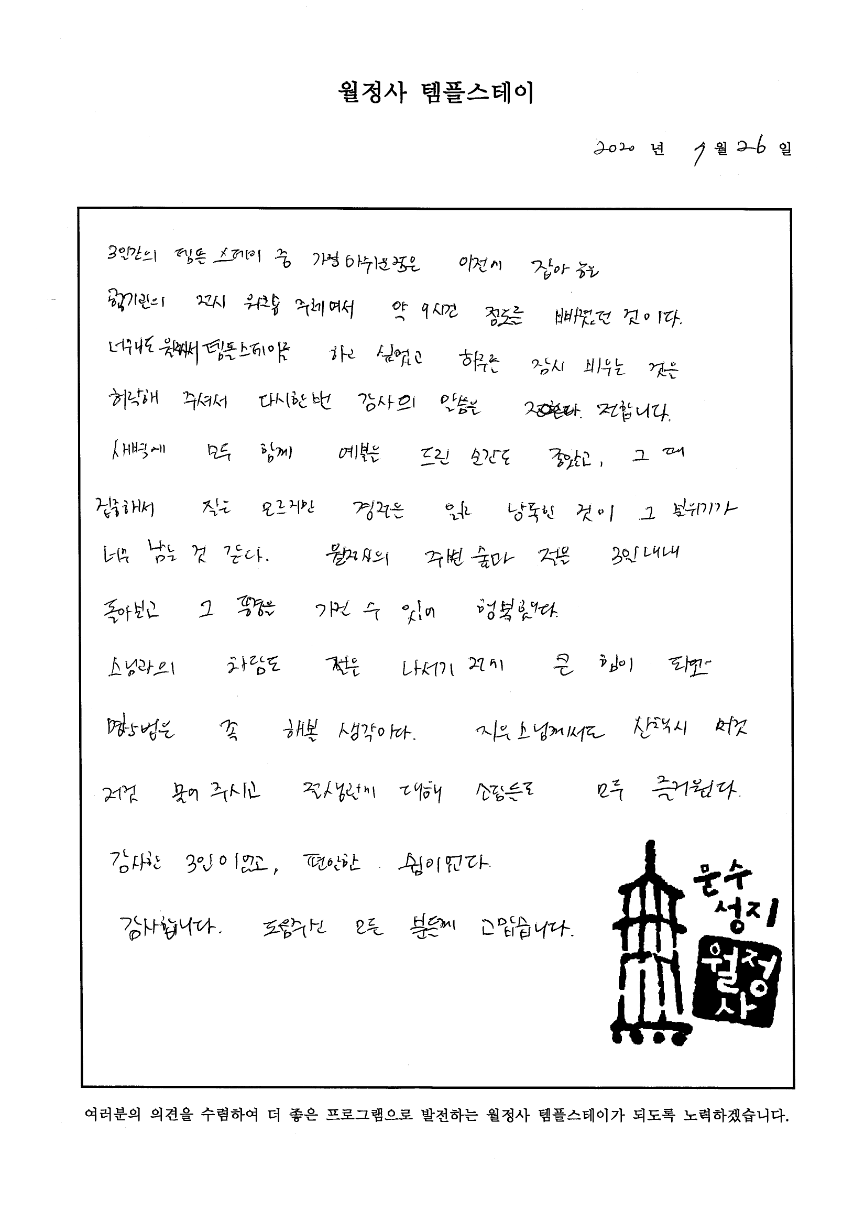 월정사 템플스테이
2020 년 7 월 26 일
3일간의 템플 스테이 중 가장 아쉬운 점은 이전에 잡아 놓은
전시 워크숍 약 9시간 정도를 빠졌던 것이다.
너무나도 템플스테이를 하고 싶었고 하루를 잠시 비우는 것을
허락해 주셔서 다시한번 감사의 말씀을 전합니다.
새벽에 모두 함께 예불을 드린 순간도 좋았고, 그 때
집중해서 잘은 모르지만 경전을 읽고 낭독한 것이 그 분위기가
너무 남는 것 같다. 월정사의 주변 숲과 절을 3일내내
돌아보고 그 풍경을 가질 수 있어 행복했다.
스님과의 차담도 절을 나서기 전에 큰 힘이 되었고
명상법은 꼭 해볼 생각이다. 지우스님께서도 산책시 이것
저것 물어 주시고 대해 소탐들도 모두 즐거웠다.
감사한 3일이었고, 편안한 쉼이었다.
감사합니다. 도움주신 모든 분들께 고맙습니다.
문수
성지
월정
사
여러분의 의견을 수렴하여 더 좋은 프로그램으로 발전하는 월정사 템플스테이가 되도록 노력하겠습니다.